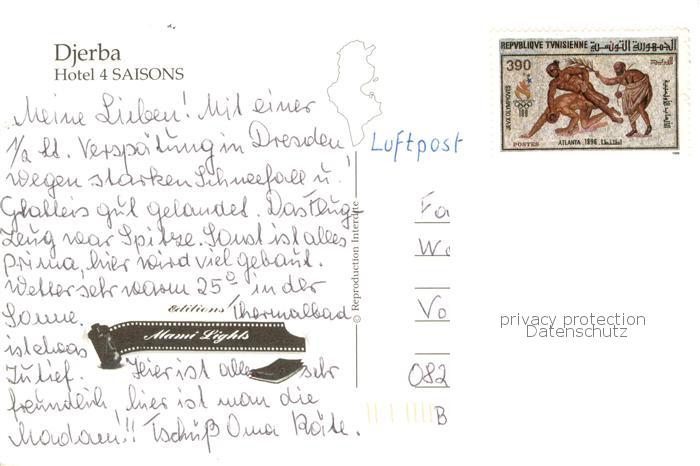 Djerba
Hotel 4 SAISONS
Meine Lieben! Mit einer
1/2 St. Verspätung in Dresden
wegen starken Schneefall u.
Glatteis gut gelandet. Das Flug-
zeug war Spitze. Sonst ist alles
prima, hier wird viel gebaut.
Wetter sehr warm 25° in der
Sonne. Thermalbad
ist etwas
zu tief. Hier ist alles sehr
freundlich, hier ist man die
Madam!! Tschüß Oma Käte.
Editions
Mami Lights
© Reproduction Interdite
Luftpost
REPVBLIQVE TVNISIENNE الجمهورية التونسية
390
JEVX OLYMPIQVES
100
POSTES
ATLANTA 1996
Fa
We
Vo
082
B
privacy protection
Datenschutz